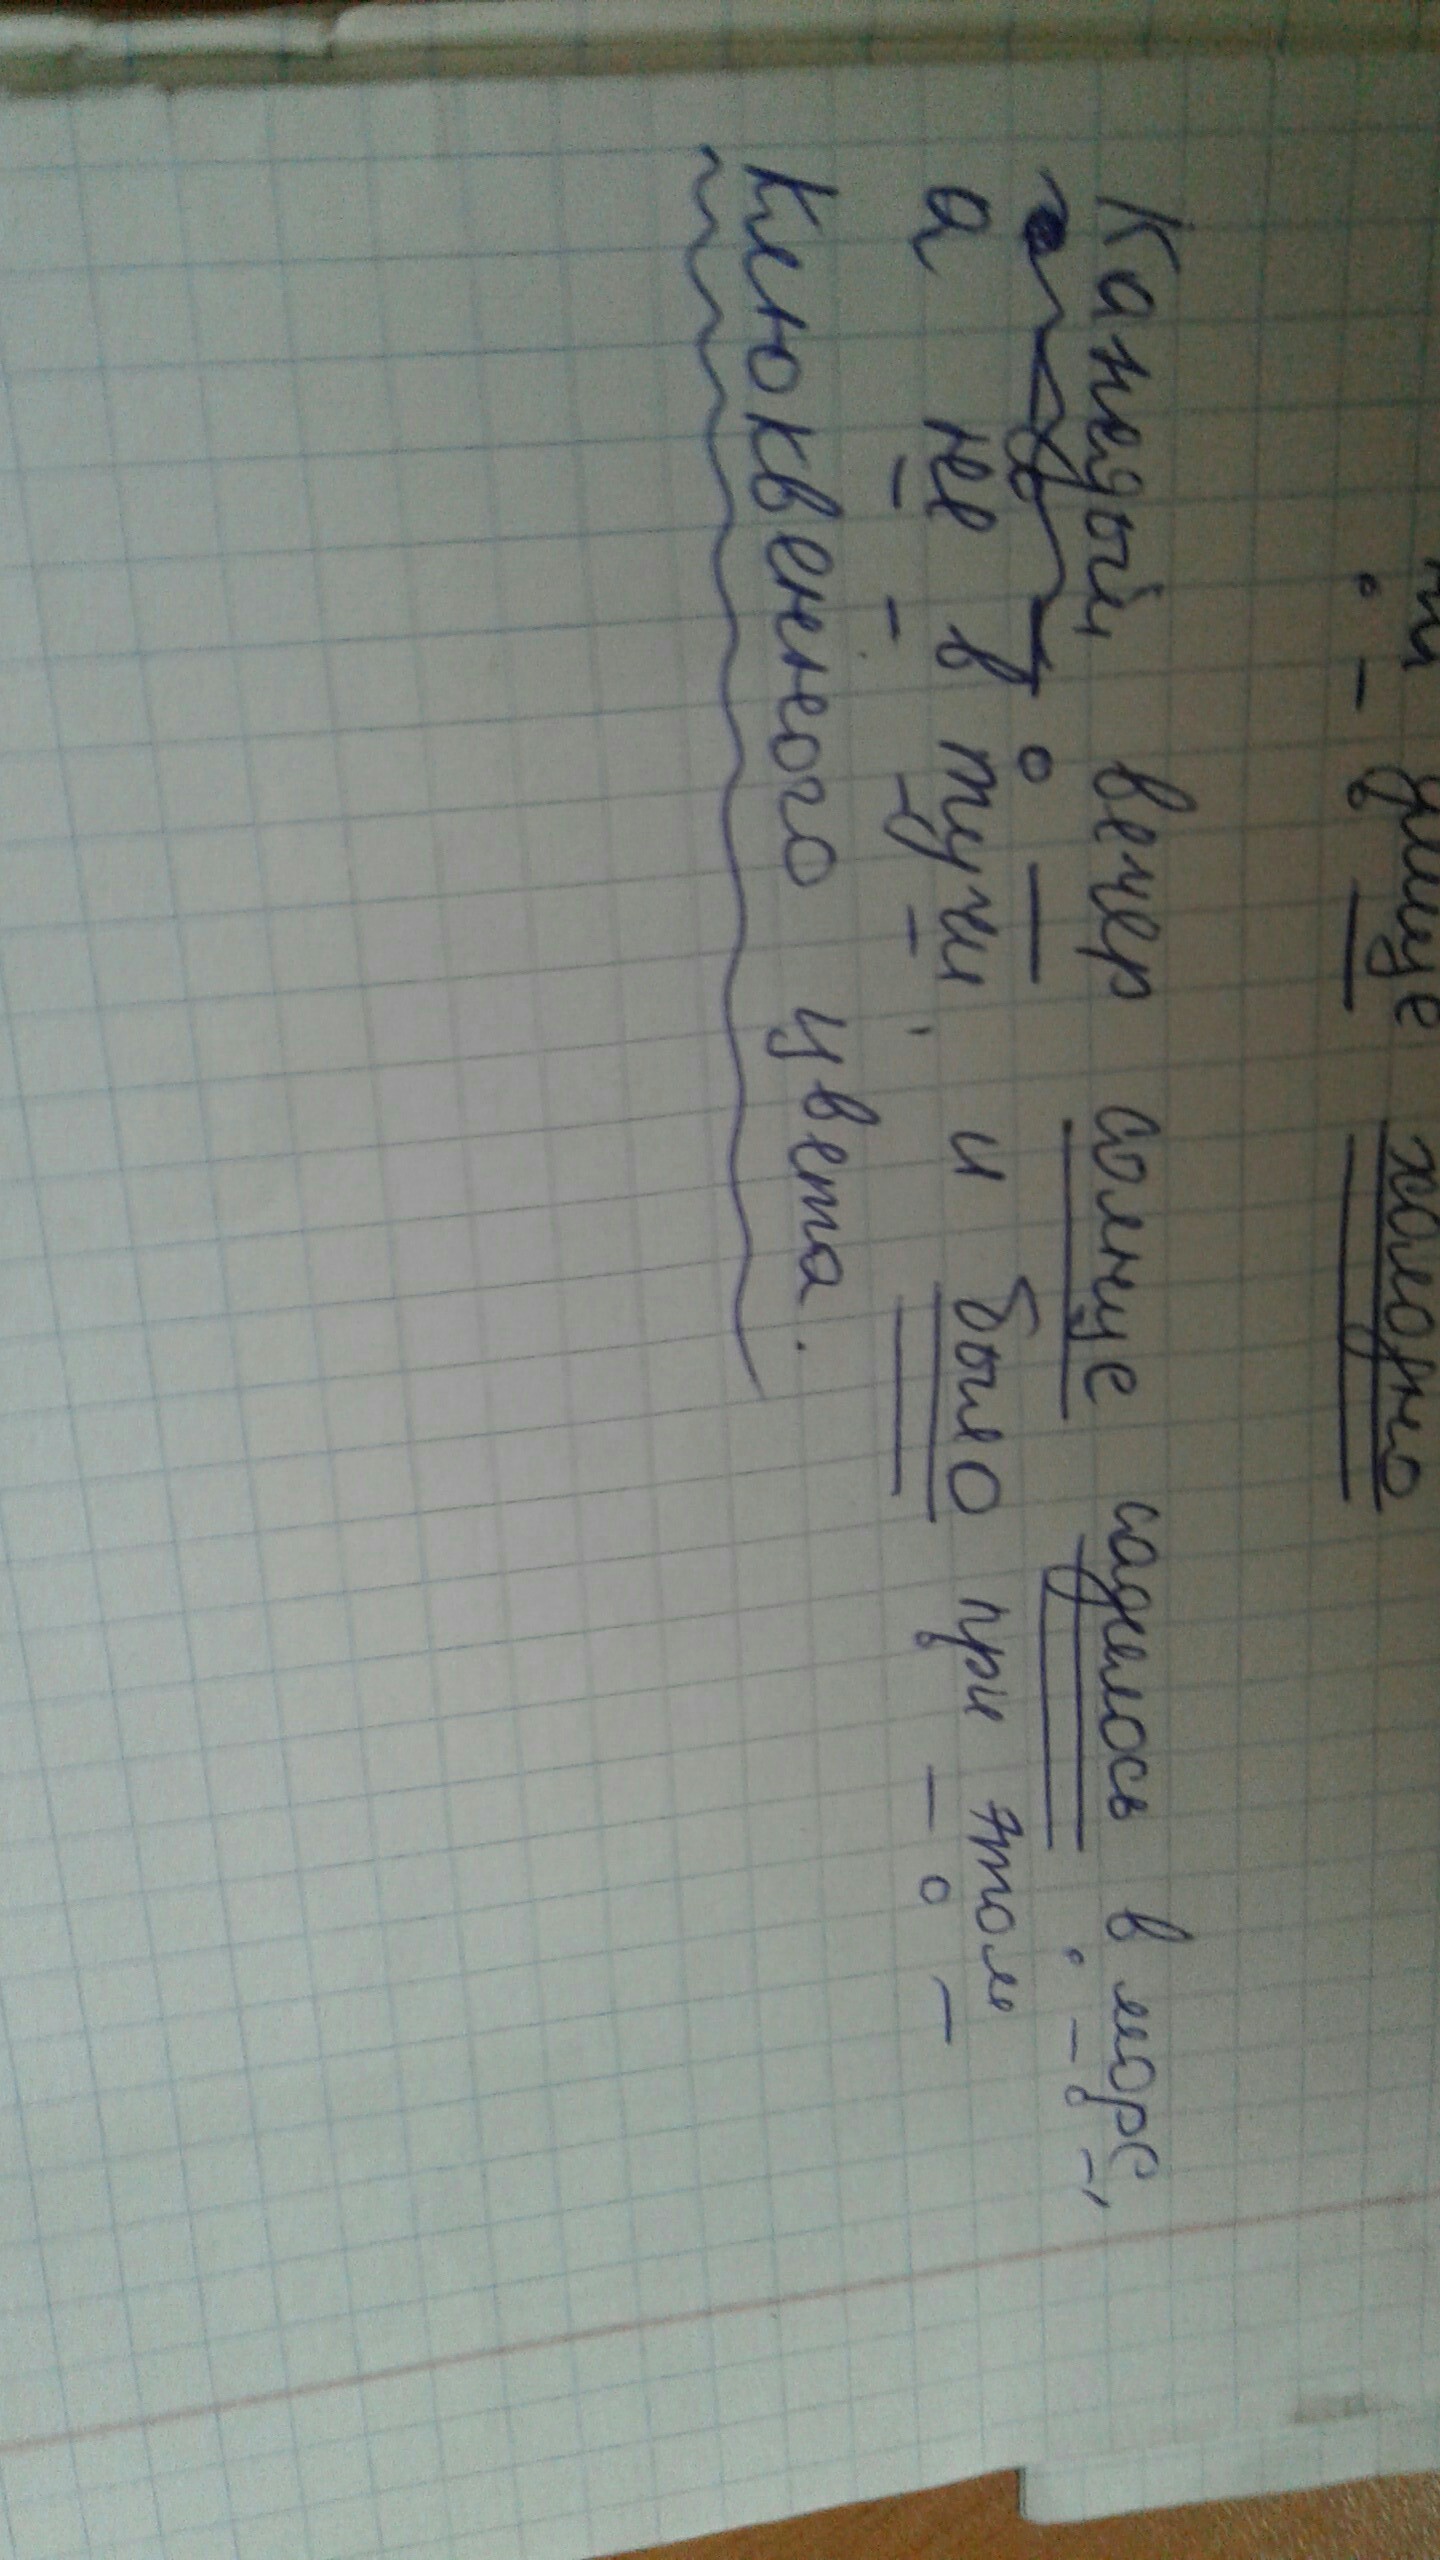 улице холодно
Каждый вечер солнце садилось в море,
а не в тучи и было при этом
клюквенного цвета.